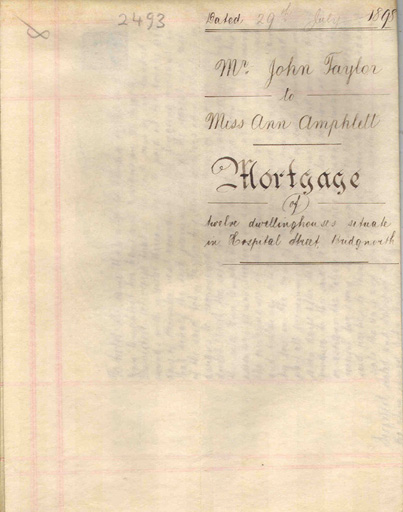 2493
Dated 29th July 1898
Mr. John Taylor
to
Miss Ann Amphlett
Mortgage
of
twelve dwellinghouses situate
in Hospital Street, Bridgnorth